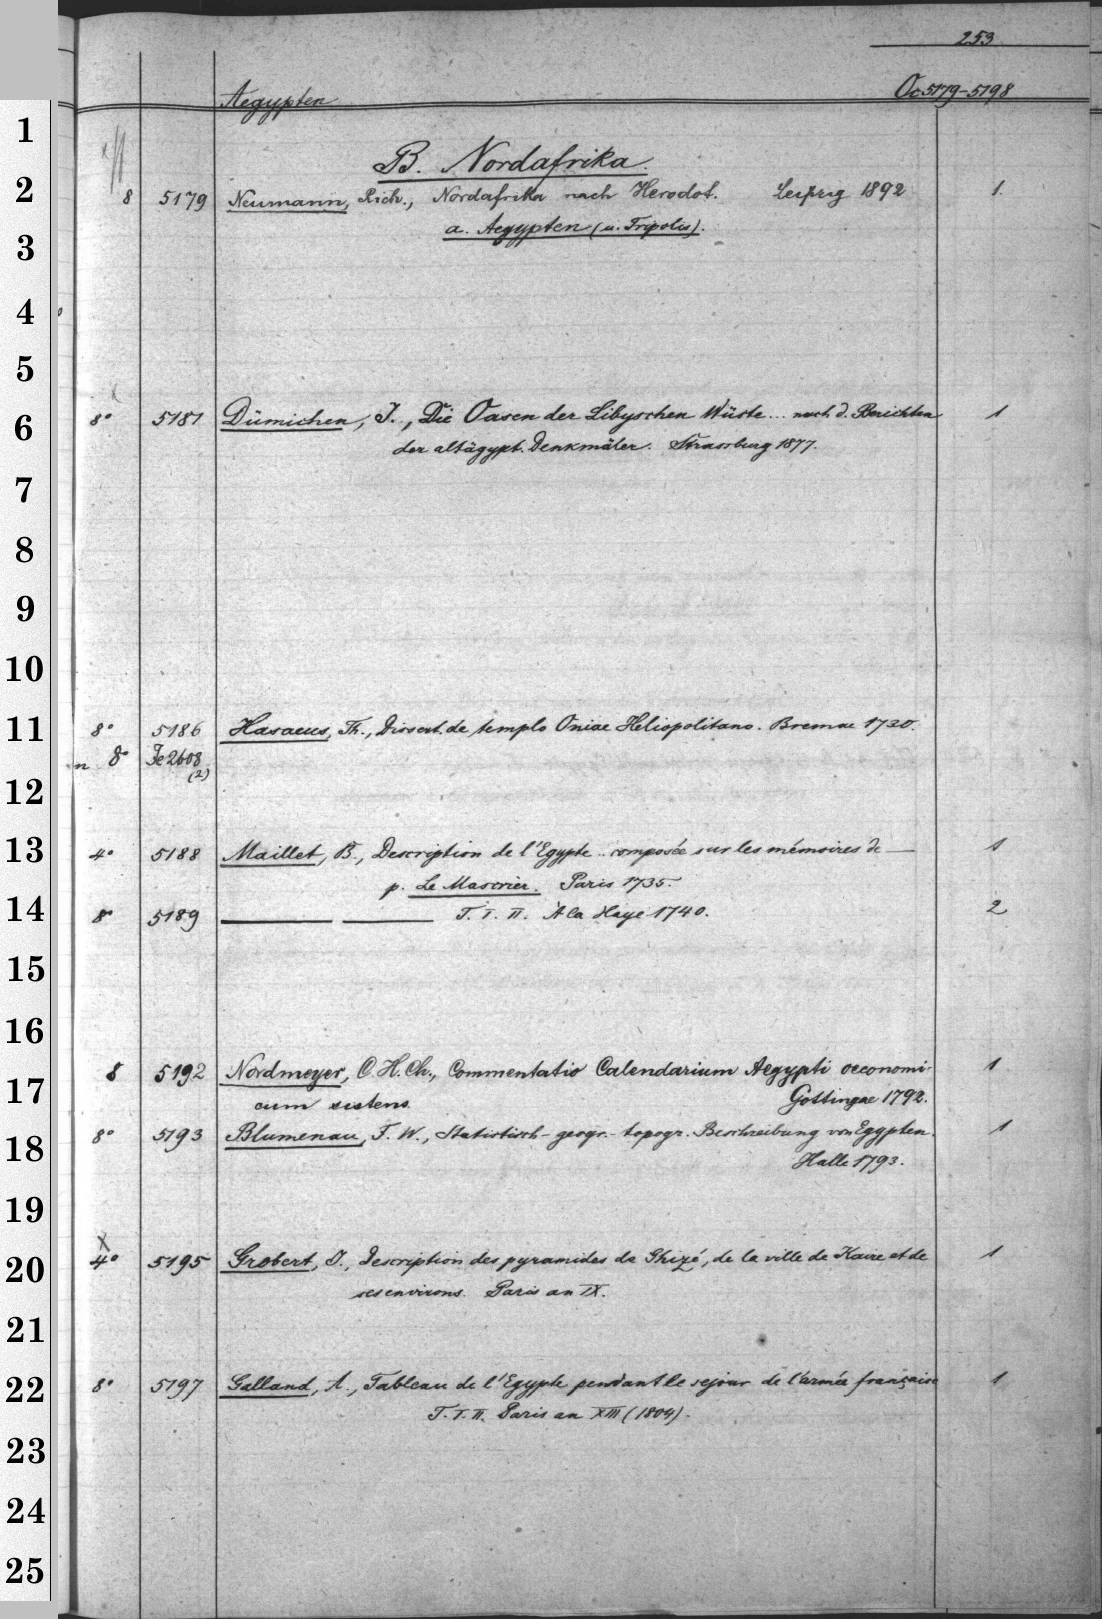 253
Aegypten Oc 5179-5198
1
B. Nordafrika
2 8 5179 Neumann, Rich., Nordafrika nach Herodot. Leipzig 1892 1
a. Aegypten (u. Tripolis).
3
4
5
6 8° 5181 Dümichen, J., Die Oasen der Libyschen Wüste... nach d. Berichten 1
der altägypt. Denkmäler. Strassburg 1877.
7
8
9
10
11 8° 5186 Hasaeus, Th., Dissert. de templo Oniae Heliopolitano. Bremae 1730.
8° Je 2608
(2)
12
13 4° 5188 Maillet, B., Description de l'Egypte .. composée sur les mémoires de — 1
p. Le Mascrier. Paris 1735.
14 8° 5189 — — T. I. II. A la Haye 1740. 2
15
16
17 8 5192 Nordmeyer, C. H. Ch., Commentatio Calendarium Aegypti oeconomi- 1
cum sistens Gottingae 1792.
18 8° 5193 Blumenau, F. W., Statistisch-geogr.-topogr. Beschreibung von Egypten. 1
Halle 1793.
19
20 4° 5195 Grobert, J., Description des pyramides de Ghizé, de la ville de Kaire et de 1
ses environs. Paris an IX.
21
22 8° 5197 Galland, A., Tableau de l'Egypte pendant le sejour de l'armée française 1
T. I. II. Paris an XIII (1804).
23
24
25